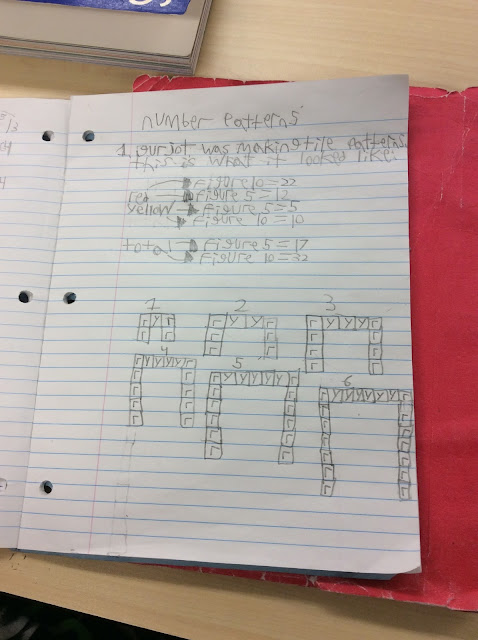 number patterns
1. gurjot was making tile patterns.
this is what it looked like:
figure 10=22
red figure 5=12
yellow figure 5=5
figure 10=10
total figure 5=17
figure 10=32
1 2 3
r y r r y y r r y y y r
4 5 6
r y y y y r r y y y y y r r y y y y y y r